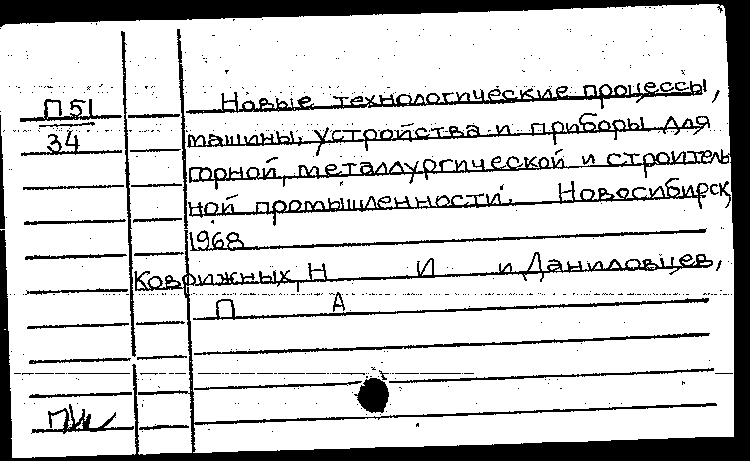 П51
34
Новые технологические процессы,
машины, устройства и приборы для
горной, металлургической и строитель
ной промышленности. Новосибирск,
1968
Коврижных, Н И и Даниловцев,
П А